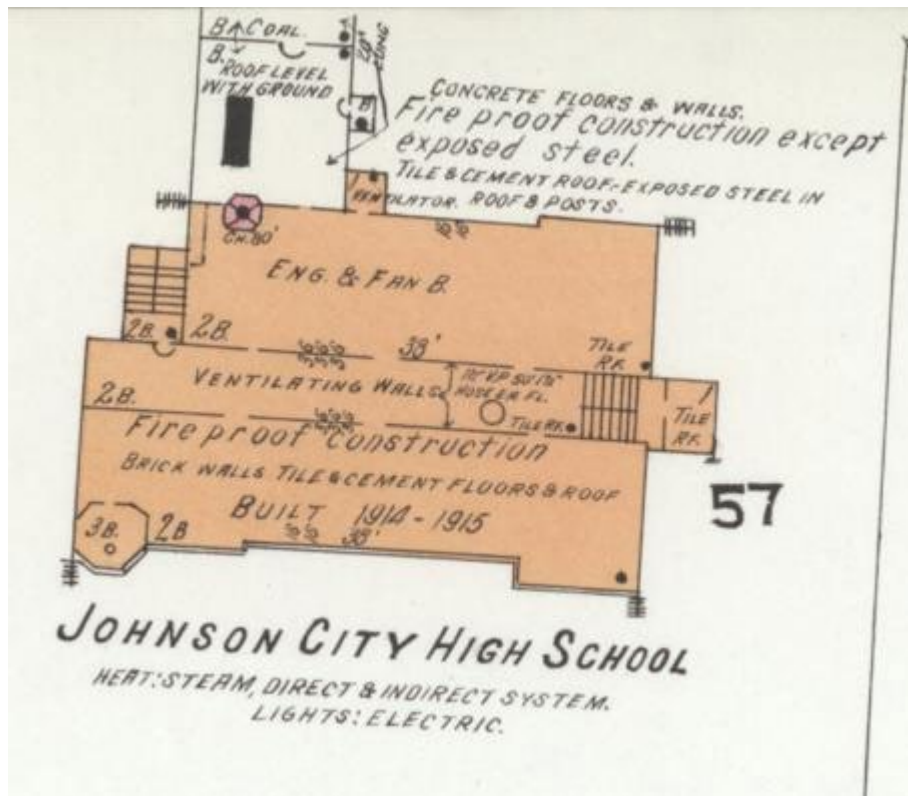 B. COAL.
B. ROOF LEVEL
WITH GROUND
20"
LONG
B
CONCRETE FLOORS & WALLS.
Fire proof construction except
exposed steel.
TILE & CEMENT ROOF-EXPOSED STEEL IN
VENTILATOR. ROOF & POSTS.
1
CH. 80'
ENG. & FAN B.
2B.
2B.
38'
TILE
RF.
VENTILATING WALLS
HOSE EA. FL.
2B.
TILE RF.
1
TILE
RF.
Fire proof construction
BRICK WALLS TILE & CEMENT FLOORS & ROOF
BUILT 1914-1915
3B.
2B
38'
57
JOHNSON CITY HIGH SCHOOL
HEAT: STEAM, DIRECT & INDIRECT SYSTEM.
LIGHTS: ELECTRIC.